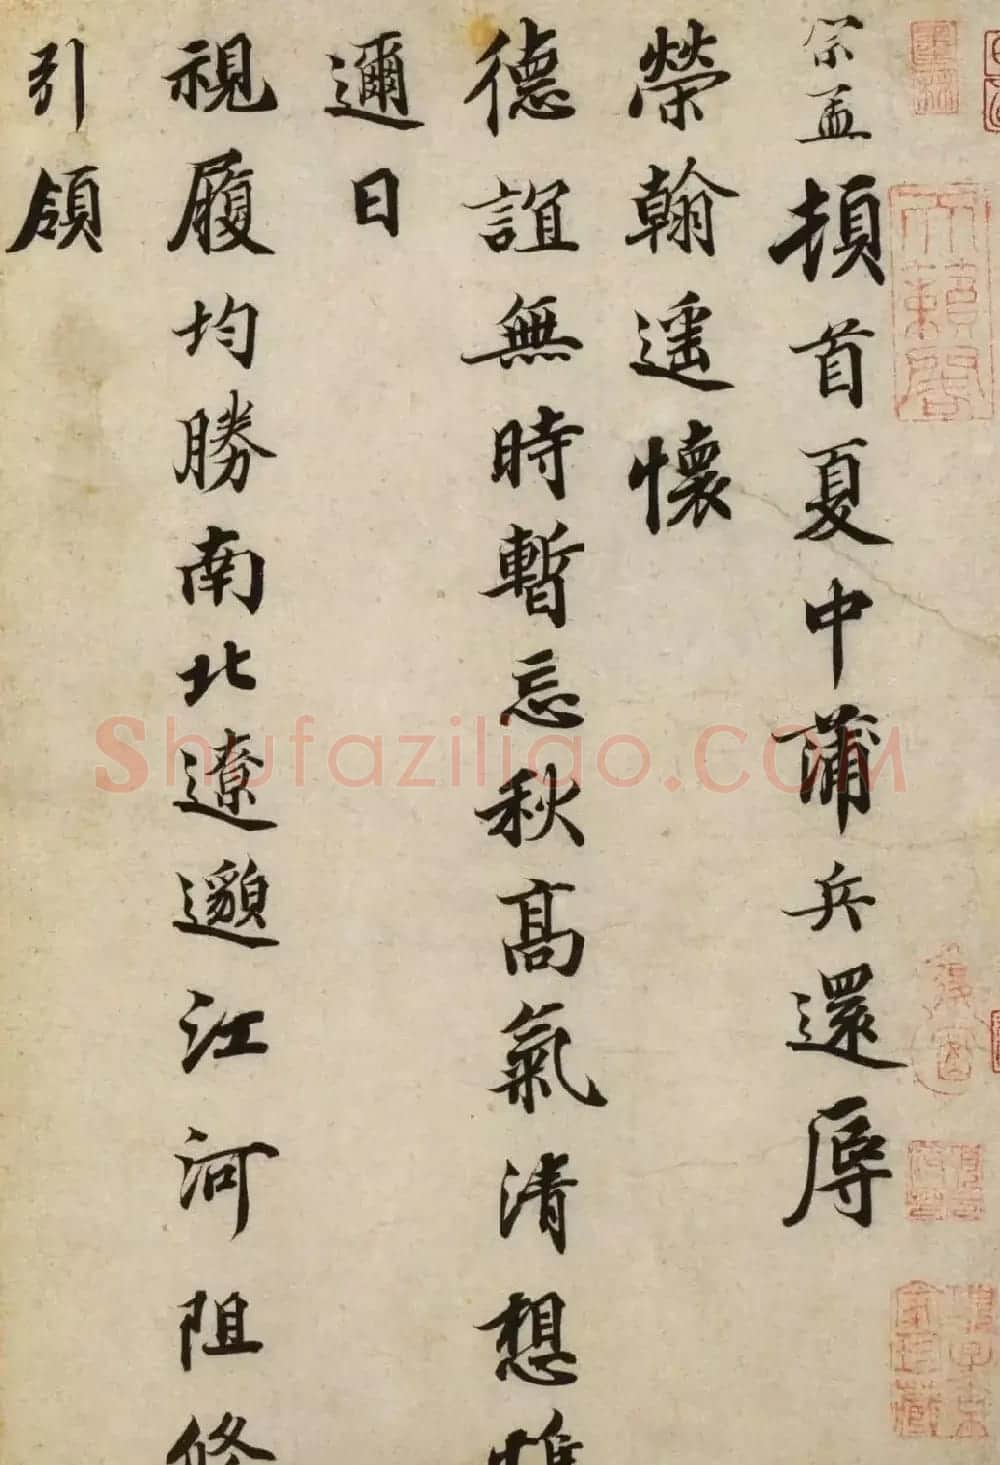 宗孟頓首夏中蒲兵還辱
榮翰遥懷
德誼無時暫忘秋髙氣清想惟
邇日
視履均勝南北遼邈江河阻修
引領
天籟閣
Shufaziligo.COM